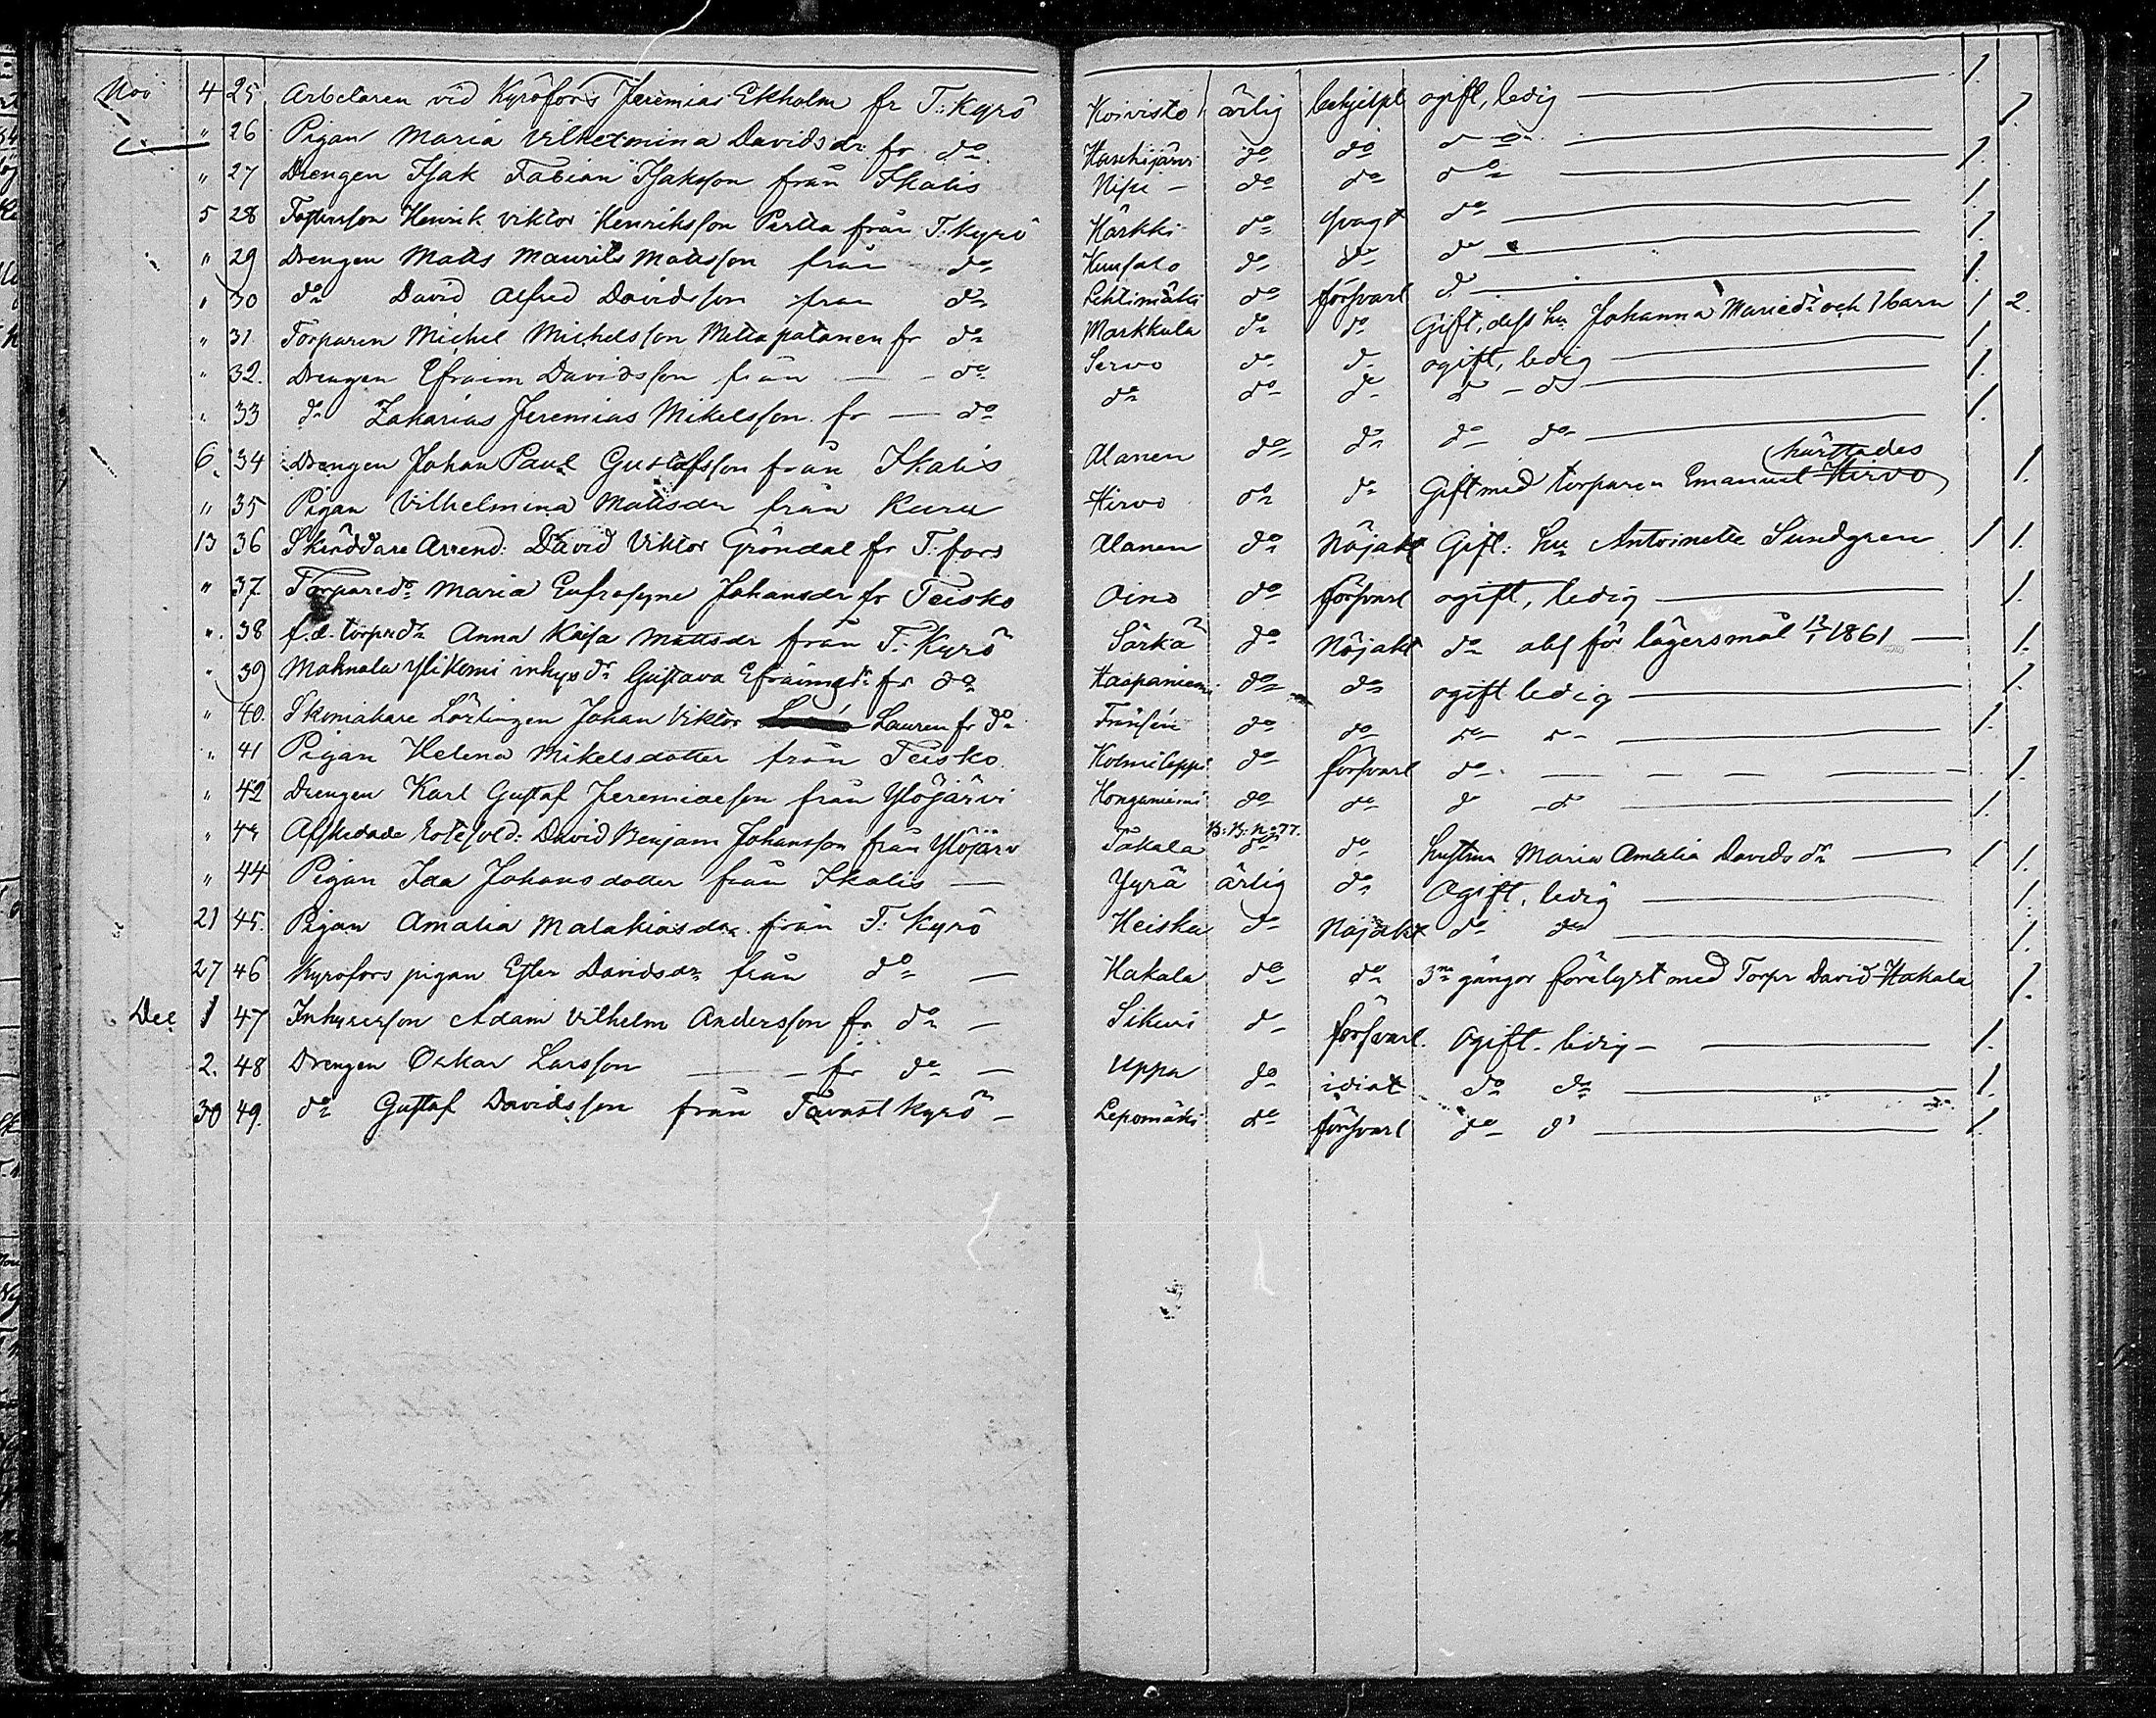 Nov 4 25 Arbetaren vid Kyröfors Jeremias Ekholm fr T: Kyrö Koivisto ärlig behjelpl ogift, ledig — 1.
" 26 Pigan Maria Vilhelmina Davidsdr fr do do do do — 1.
" 27 Drengen Isak Fabian Isaksson från Ikalis do do do — 1.
5 28 Henrik Viktor Henriksson från T: Kyrö Härkki do svagt do — 1.
" 29 Drengen Matts Maurits Mattsson från do do do do — 1.
" 30 do David Alfred Davidsson från do Lehtimäki do försvarl do — 1.
" 31. Torparen Michel Michelsson fr do Markkula do do Gift, dess hu Johanna Mariedr och 1 barn 1 2.
" 32. Drengen Efraim Davidsson från — do Servo do do ogift, ledig — 1.
" 33 do Zakarias Jeremias Mikelsson fr — do do do do do - do — 1.
6. 34 Drengen Johan Paul Gustafsson från Ikalis Alanen do do do do — 1.
" 35 Pigan Vilhelmina Mattsdr från Kuru Hirvo do do Gift med torparen Emanuel Hirvo 1.
13 36 Arrend: David Viktor Gröndal fr T: fors Alanen do Nöjakt Gift: hu Antoinette Sundgren 1 1.
" 37 Torparedr Maria Eufrosyne Johansdr fr Teisko Oino do försvarl ogift, ledig — 1.
" 38 f.d. torparedr Anna Kaisa Mattsdr från T: Kyrö Särkä do Nöjakt do abs för lägersmål 1861 — 1.
" 39 Mahnala Ylikomi inhys dr Gustava Efraimsdr fr do Haapaniemi do do ogift ledig — 1.
" 40. Skomakare Lärlingen Johan Viktor Lauren fr do Fränsén do do do do — 1.
" 41 Pigan Helena Mikelsdotter från Teisko Kolmiloppi do försvarl do — 1.
" 42 Drengen Karl Gustaf Jeremiaeson från Ylöjärvi Honganiemi do do do - do — 1.
" 43 Afskedade David Benjam Johansson från Ylöjärv Takala B: B: No 77. do do hustrun Maria Amalia Davidsdr — 1 1.
" 44 Pigan Ida Johansdotter från Ikalis — Yyrä ärlig do Ogift, ledig — 1.
21 45. Pigan Amalia Malakiasdr från T: Kyrö Heiska do Nöjakt do do — 1.
27 46 Kyrofors pigan Ester Davidsdr från do — Hakala do do 3ne gånger förelyst med Torpr David Hakala 1.
Dec 1 47 Inhyseson Adam Vilhelm Andersson fr do — Sikuri do försvarl. Ogift. ledig — 1.
2. 48 Drengen Oskar Larsson — fr do — Uppa do idiot do do — 1.
30 49. do Gustaf Davidsson från Tavastkyrö — Lepomäki do försvarl do do — 1.